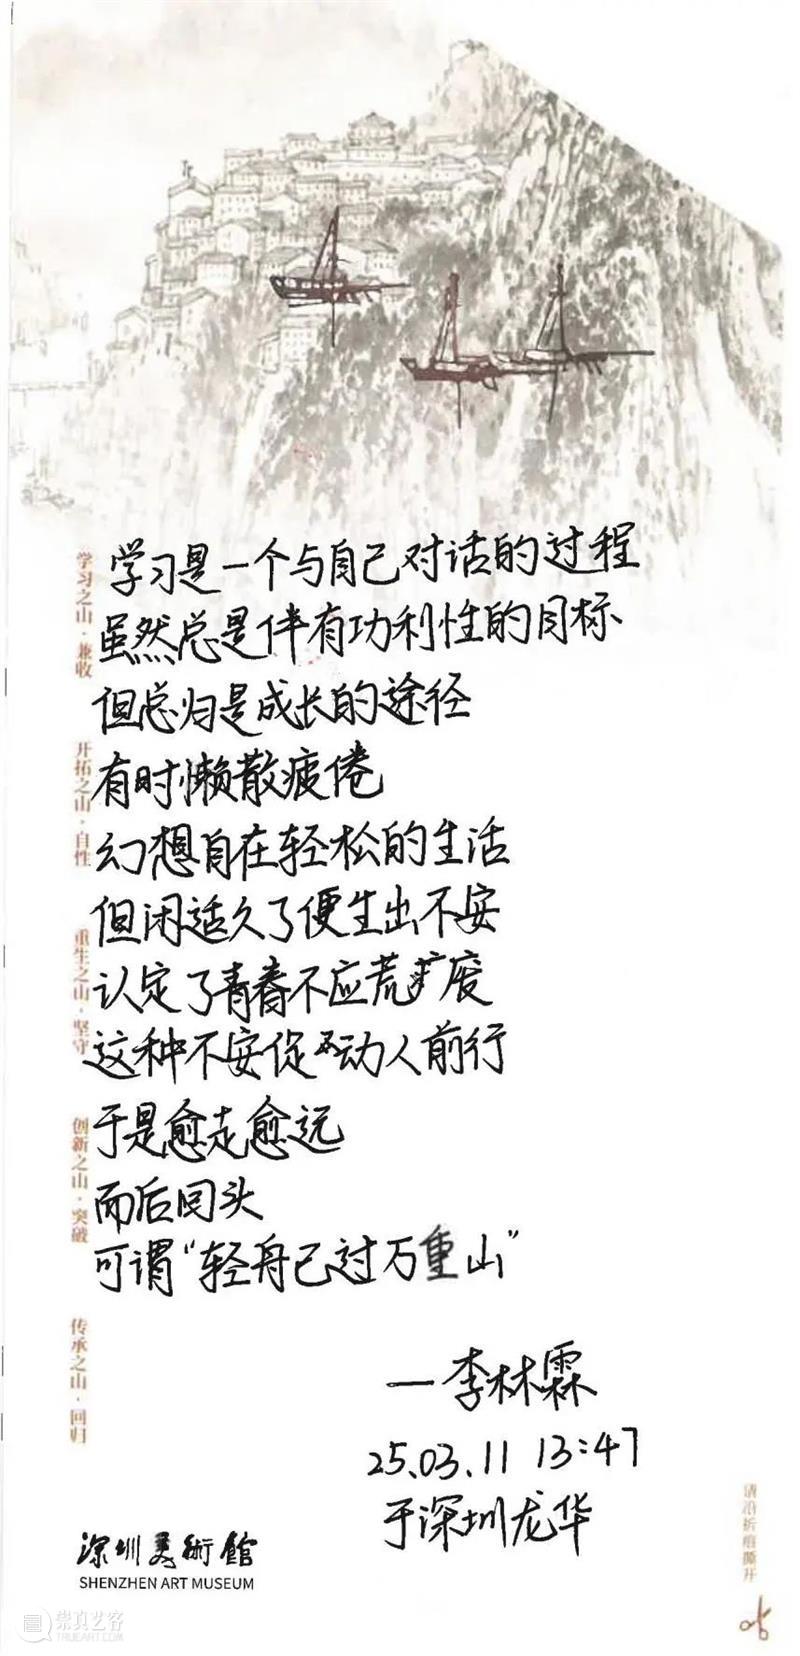 学习是一个与自己对话的过程
虽然总是伴有功利性的目标
但总归是成长的途径
有时懒散疲倦
幻想自在轻松的生活
但闲适久了便生出不安
认定了青春不应荒废
这种不安促动人前行
于是愈走愈远
而后回头
可谓“轻舟已过万重山”
—李林霖
25.03.11 13:47
于深圳龙华
学习之山·兼收
开拓之山·自性
重生之山·坚守
创新之山·突破
传承之山·回归
请沿折痕撕开
深圳美術館
SHENZHEN ART MUSEUM
崇真艺客
TRUEART.COM